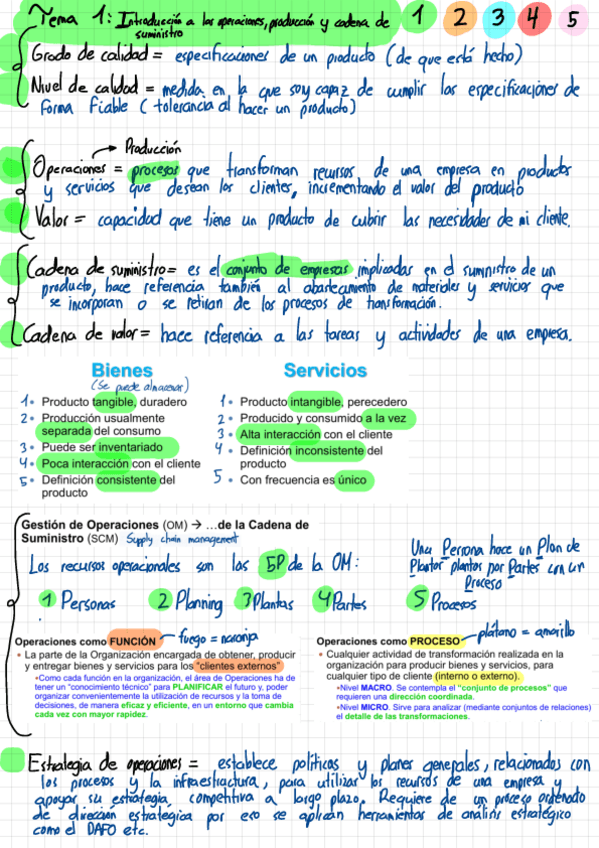 Tema 1: Introducción a las operaciones, producción y cadena de suministro 1 2 3 4 5
Grado de calidad = especificaciones de un producto (de que está hecho)
Nivel de calidad = medida en la que soy capaz de cumplir las especificaciones de
forma fiable (tolerancia al hacer un producto)
Producción
Operaciones = procesos que transforman recursos de una empresa en productos
y servicios que desean los clientes, incrementando el valor del producto
Valor = capacidad que tiene un producto de cubrir las necesidades de mi cliente.
Cadena de suministro = es el conjunto de empresas implicadas en el suministro de un
producto, hace referencia también al abastecimiento de materiales y servicios que
se incorporan o se retiran de los procesos de transformación.
Cadena de valor = hace referencia a las tareas y actividades de una empresa.
Bienes
(Se puede almacenar)
1 • Producto tangible, duradero
2 • Producción usualmente
separada del consumo
3 • Puede ser inventariado
4 • Poca interacción con el cliente
5 • Definición consistente del
producto
Servicios
1 • Producto intangible, perecedero
2 • Producido y consumido a la vez
3 • Alta interacción con el cliente
4 • Definición inconsistente del
producto
5 • Con frecuencia es único
Gestión de Operaciones (OM) → …de la Cadena de
Suministro (SCM) Supply chain management
Los recursos operacionales son las 5P de la OM:
Una Persona hace un Plan de
Plantar plantas por Partes con un
Proceso
1 Personas 2 Planning 3 Plantas 4 Partes 5 Procesos
Operaciones como FUNCIÓN fuego = naranja
• La parte de la Organización encargada de obtener, producir
y entregar bienes y servicios para los "clientes externos"
•Como cada función en la organización, el área de Operaciones ha de
tener un "conocimiento técnico" para PLANIFICAR el futuro y, poder
organizar convenientemente la utilización de recursos y la toma de
decisiones, de manera eficaz y eficiente, en un entorno que cambia
cada vez con mayor rapidez.
Operaciones como PROCESO plátano = amarillo
• Cualquier actividad de transformación realizada en la
organización para producir bienes y servicios, para
cualquier tipo de cliente (interno o externo).
•Nivel MACRO. Se contempla el "conjunto de procesos" que
requieren una dirección coordinada.
•Nivel MICRO. Sirve para analizar (mediante conjuntos de relaciones)
el detalle de las transformaciones.
Estrategia de operaciones = establece políticas y planes generales, relacionados con
los procesos y la infraestructura, para utilizar los recursos de una empresa y
apoyar su estrategia competitiva a largo plazo. Requiere de un proceso ordenado
de dirección estratégica por eso se aplican herramientas de análisis estratégico
como el DAFO etc.